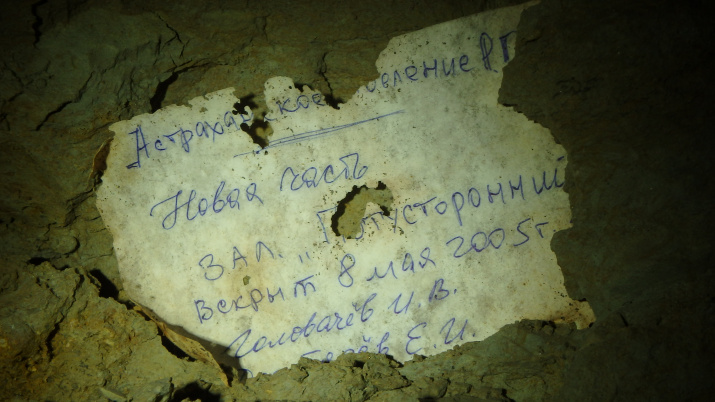 Астраха ское овление РГ
Новая часть
ЗАЛ. „П тусторонний
Вскрыт 8 мая 2005г
Головачёв И. В.
Е. И.